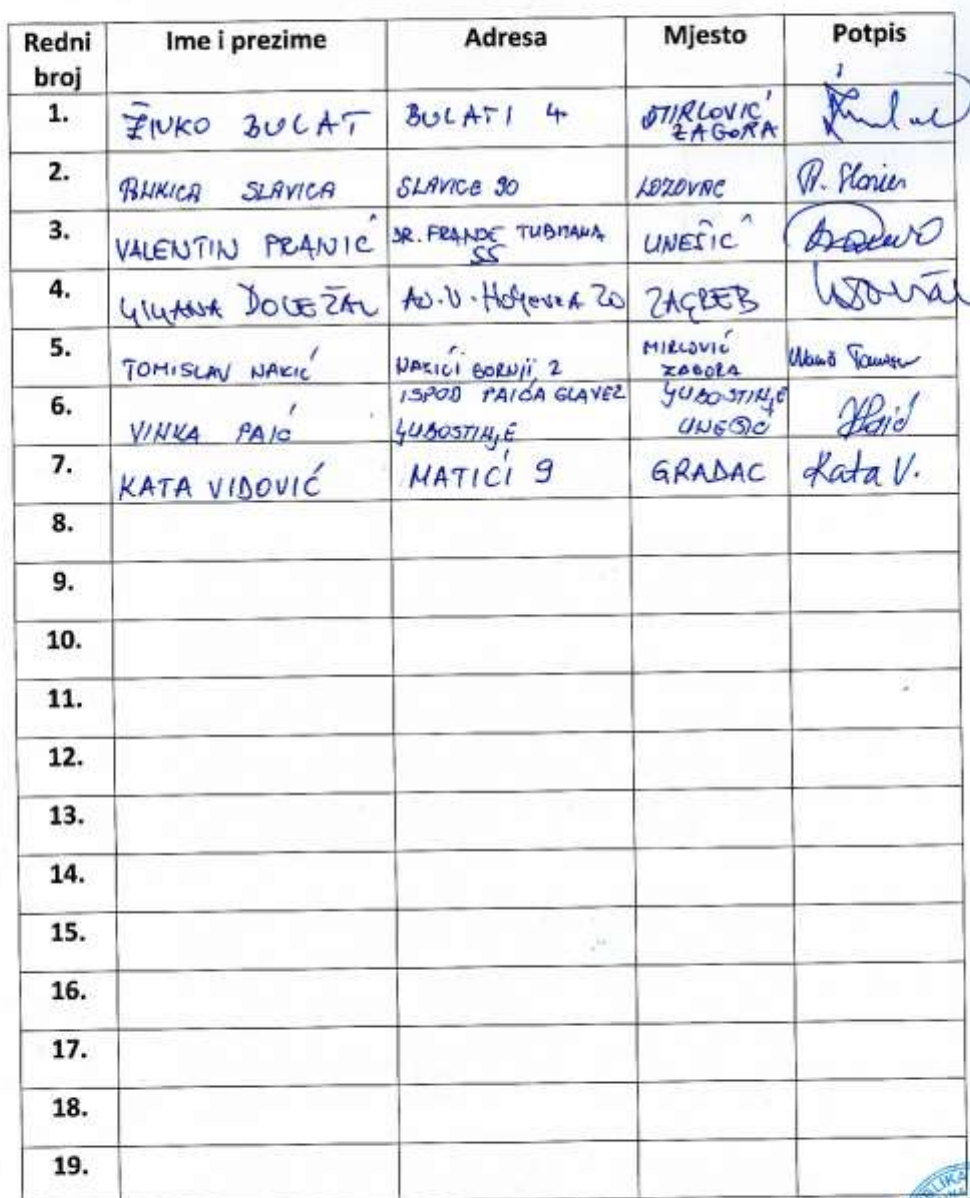 Redni broj Ime i prezime Adresa Mjesto Potpis
1. ŽIVKO BULAT BULATI 4 MIRLOVIĆ ZAGORA
2. SLAVICA SLAVICE 90 LOZOVAC
3. VALENTIN PRANIĆ DR. FRANJE TUĐMANA 55 UNEŠIĆ
4. LJILJANA DOLEŽAL AV. V. HOLJEVCA 20 ZAGREB
5. TOMISLAV NAKIĆ NAKIĆI GORNJI 2 MIRLOVIĆ ZAGORA
6. VINKA PAIĆ ISPOD PAIĆA GLAVE 2 LJUBOSTINJE LJUBOSTINJE UNEŠIĆ Paić
7. KATA VIDOVIĆ MATIĆI 9 GRADAC Kata V.
8.
9.
10.
11.
12.
13.
14.
15.
16.
17.
18.
19.